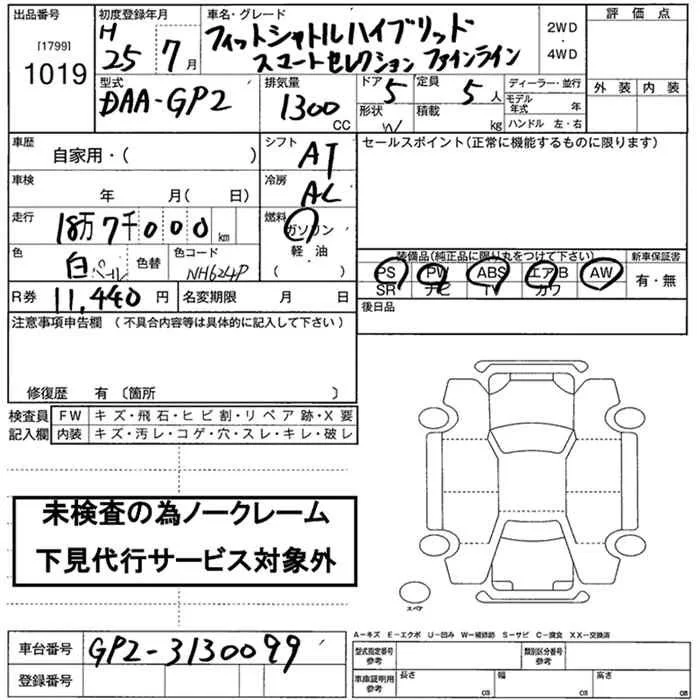 出品番号 初度登録年月 車名・グレード 評価点
[1799] H フィットシャトルハイブリッド 2WD
1019 25 7月 スマートセレクション ファインライン 4WD
外装 内装
型式 排気量 ドア 定員 ディーラー・並行
DAA-GP2 1300 CC 5 5人 モデル年式 年
形状 W 積載 kg ハンドル 左・右
車歴 シフト セールスポイント(正常に機能するものに限ります)
自家用・( ) AT
車検 冷房
年 月( 日) AC
走行 燃料
18万7千000km ガソリン
色 色替 色コード 軽油 装備品(純正品に限り丸をつけて下さい) 新車保証書
白パール NH624P ( ) PS PW ABS エアB AW 有・無
SR ナビ TV カワ
R券 11,440円 名変期限 月 日 後日品
注意事項申告欄 (不具合内容等は具体的に記入して下さい)
修復歴 有 〔箇所 〕
検査員 FW キズ・飛石・ヒビ割・リペア跡・X要
記入欄 内装 キズ・汚レ・コゲ・穴・スレ・キレ・破レ
未検査の為ノークレーム
下見代行サービス対象外
スペア
A-キズ E-エクボ U-凹み W-補修跡 S-サビ C-腐食 XX-交換済
車台番号 GP2-3130099 型式指定番号 参考 類別区分番号 参考
登録番号 車庫証明用 参考 長さ cm 幅 cm 高さ cm